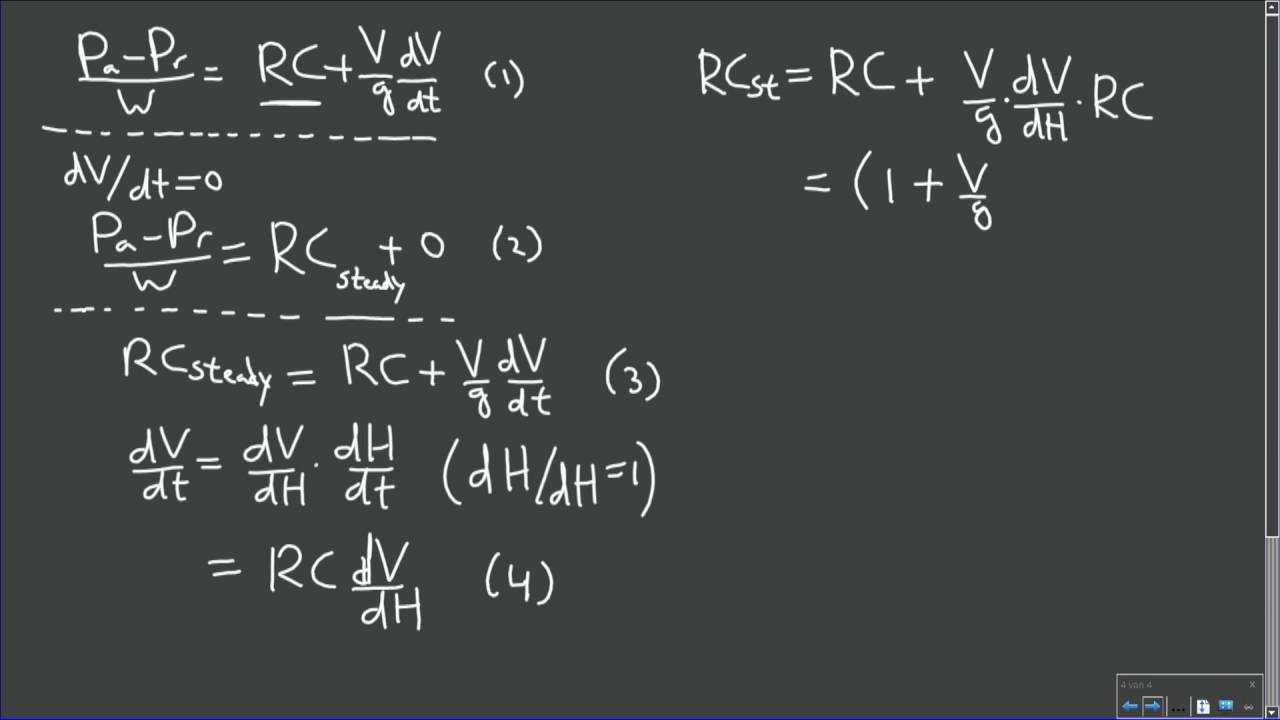 (Pa-Pr)/W = RC + V/g dV/dt (1)
dV/dt=0
(Pa-Pr)/W = RCsteady + 0 (2)
RCsteady = RC + V/g dV/dt (3)
dV/dt = dV/dH · dH/dt (dH/dH=1)
= RC dV/dH (4)
RCst = RC + V/g · dV/dH · RC
= (1 + V/g
4 van 4 x
...